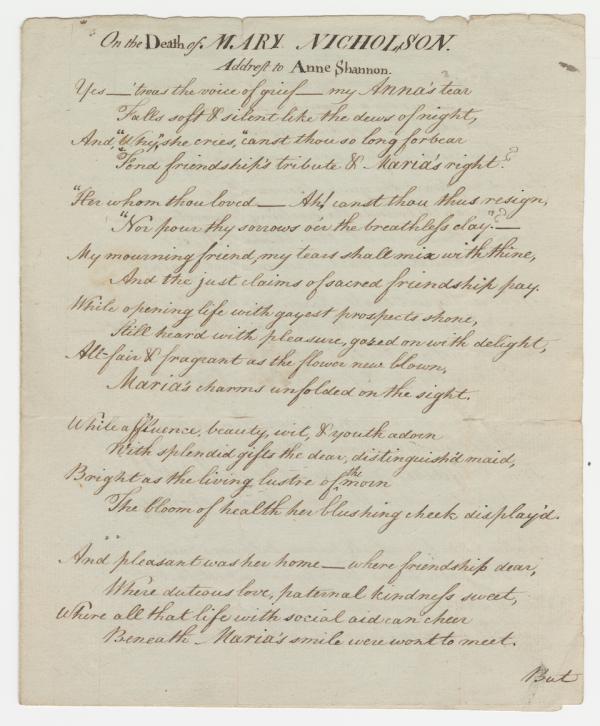 On the Death of MARY NICHOLSON.
Addrest to Anne Shannon.
Yes — 'twas the voice of grief — my Anna's tear
Falls soft & silent like the dews of night,
And, "Why," she cries, "canst thou so long forbear
"Fond friendship's tribute & Maria's right?
"Her whom thou loved — Ah! canst thou thus resign,
"Nor pour thy sorrows o'er the breathless clay"? —
My mourning friend, my tears shall mix with thine,
And the just claims of sacred friendship pay.
While opening life with gayest prospects shone,
Still heard with pleasure, gazed on with delight,
All-fair & fragrant as the flower new blown,
Maria's charms unfolded on the sight.
While affluence, beauty, wit, & youth adorn
With splendid gifts the dear, distinguish'd maid,
Bright as the living lustre of the morn
The bloom of health her blushing cheek display'd.
And pleasant was her home — where friendship dear,
Where duteous love, paternal kindness sweet,
Where all that life with social aid can cheer
Beneath Maria's smile were wont to meet.
But